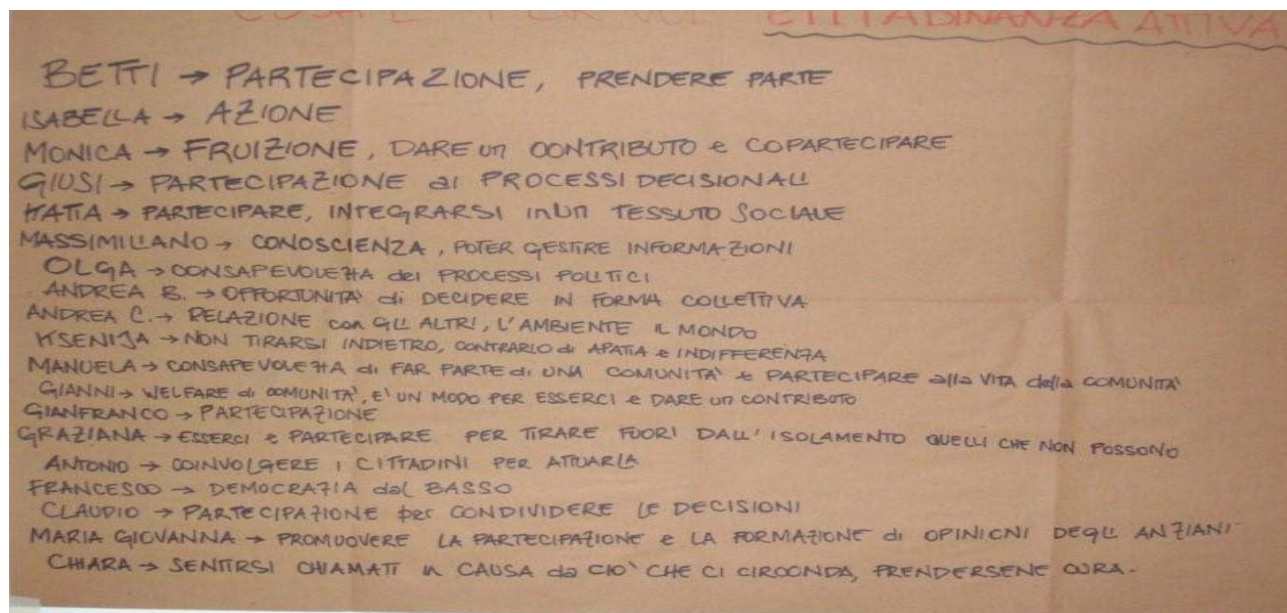 COS'È PER VOI CITTADINANZA ATTIVA
BETTI → PARTECIPAZIONE, PRENDERE PARTE
ISABELLA → AZIONE
MONICA → FRUIZIONE, DARE un CONTRIBUTO e COPARTECIPARE
GIUSI → PARTECIPAZIONE ai PROCESSI DECISIONALI
KATIA → PARTECIPARE, INTEGRARSI in un TESSUTO SOCIALE
MASSIMILIANO → CONOSCIENZA, POTER GESTIRE INFORMAZIONI
OLGA → CONSAPEVOLEZZA dei PROCESSI POLITICI
ANDREA B. → OPPORTUNITA' di DECIDERE IN FORMA COLLETTIVA
ANDREA C. → RELAZIONE con GLI ALTRI, L'AMBIENTE IL MONDO
KSENIJA → NON TIRARSI INDIETRO, CONTRARIO di APATIA e INDIFFERENZA
MANUELA → CONSAPEVOLEZZA di FAR PARTE di UNA COMUNITA' e PARTECIPARE alla VITA della COMUNITA'
GIANNI → WELFARE di COMUNITA', E' UN MODO PER ESSERCI e DARE un CONTRIBUTO
GIANFRANCO → PARTECIPAZIONE
GRAZIANA → ESSERCI e PARTECIPARE PER TIRARE FUORI DALL'ISOLAMENTO QUELLI CHE NON POSSONO
ANTONIO → COINVOLGERE I CITTADINI PER ATTUARLA
FRANCESCO → DEMOCRAZIA dal BASSO
CLAUDIO → PARTECIPAZIONE per CONDIVIDERE LE DECISIONI
MARIA GIOVANNA → PROMUOVERE LA PARTECIPAZIONE e LA FORMAZIONE di OPINIONI DEGLI ANZIANI
CHIARA → SENTIRSI CHIAMATI in CAUSA da CIO' CHE CI CIRCONDA, PRENDERSENE CURA.